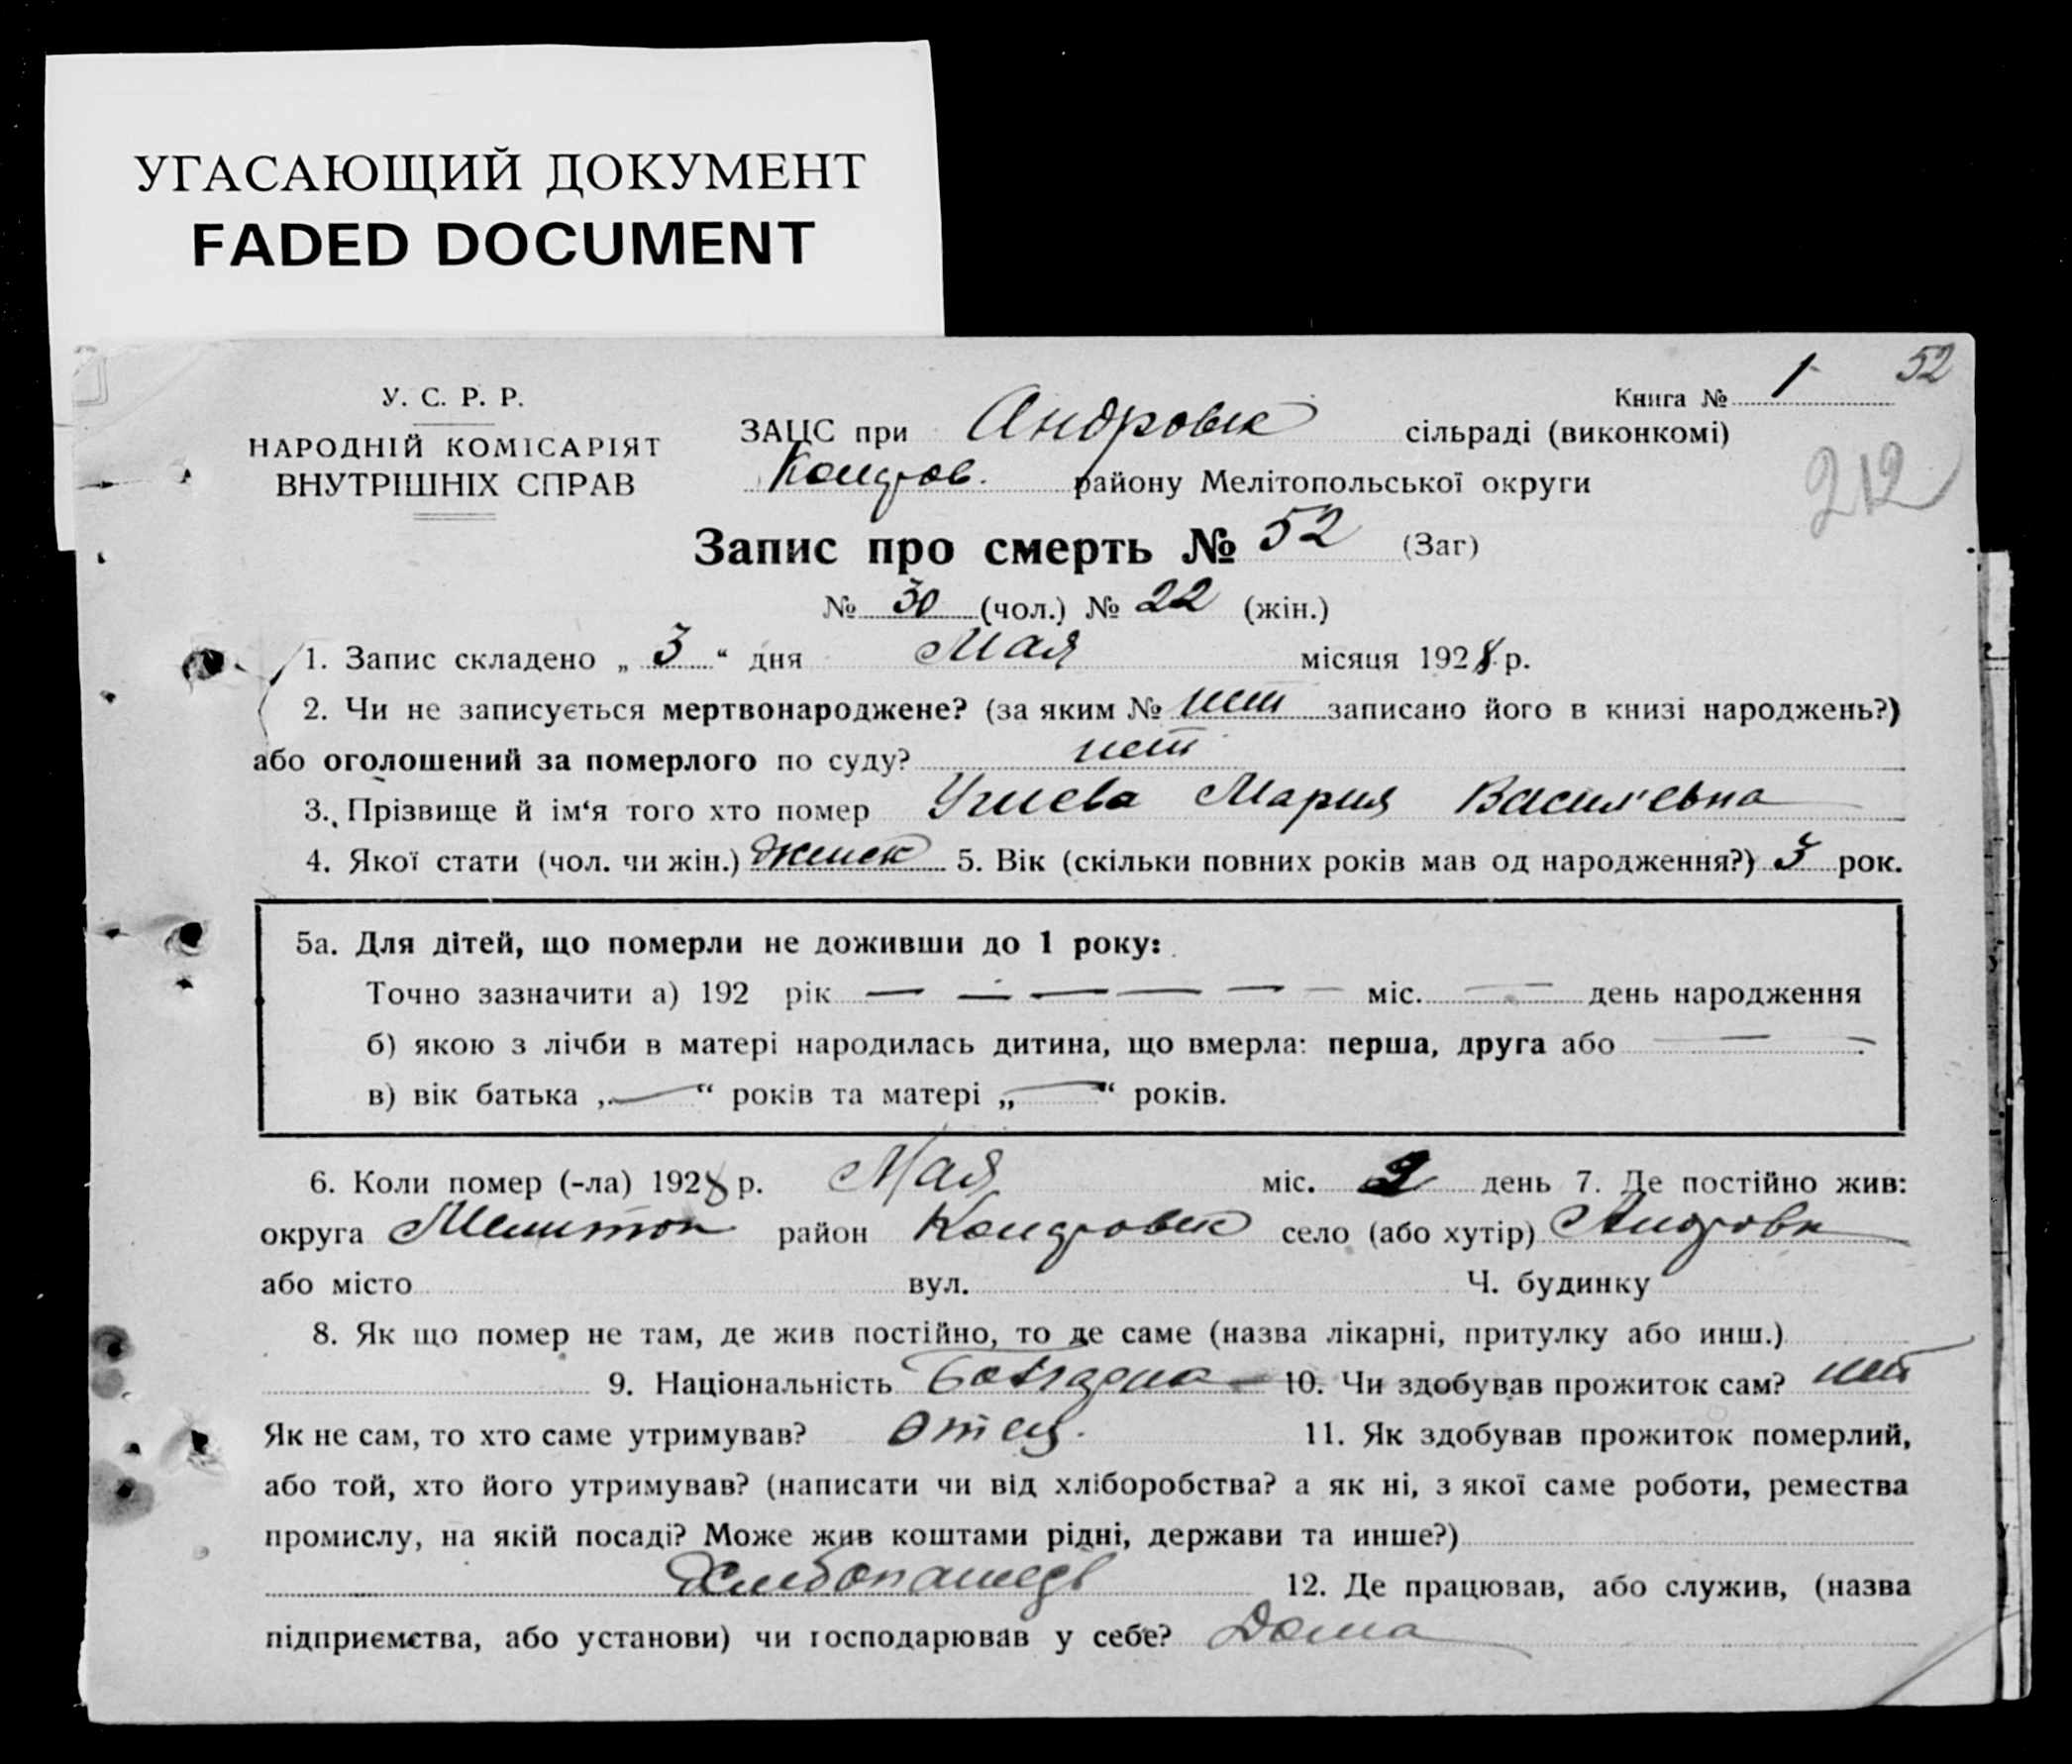 УГАСАЮЩИЙ ДОКУМЕНТ
FADED DOCUMENT
52
Книга № 1
У. С. Р. Р.
НАРОДНІЙ КОМІСАРІЯТ
ВНУТРІШНІХ СПРАВ
ЗАЦС при Андровск сільраді (виконкомі)
Кондров. району Мелітопольської округи
212
Запис про смерть № 52 (Заг)
№ 30 (чол.) № 22 (жін.)
1. Запис складено „ 3 “ дня Мая місяця 1928 р.
2. Чи не записується мертвонароджене? (за яким № нет записано його в книзі народжень?)
або оголошений за померлого по суду? нет
3. Прізвище й ім‘я того хто помер Мария Васил'евна
4. Якої стати (чол. чи жін.) женск 5. Вік (скільки повних років мав од народження?) 3 рок.
5а. Для дітей, що померли не доживши до 1 року:
Точно зазначити а) 192 рік — — — — — — міс. — день народження
б) якою з лічби в матері народилась дитина, що вмерла: перша, друга або — —
в) вік батька „ — “ років та матері „ — “ років.
6. Коли помер (-ла) 1928 р. Мая міс. 2 день 7. Де постійно жив:
округа Мелитоп район Кондровск село (або хутір) Андровк
або місто вул. Ч. будинку
8. Як що помер не там, де жив постійно, то де саме (назва лікарні, притулку або инш.)
9. Національність 10. Чи здобував прожиток сам? нет
Як не сам, то хто саме утримував? Отец. 11. Як здобував прожиток померлий,
або той, хто його утримував? (написати чи від хліборобства? а як ні, з якої саме роботи, ремества
промислу, на якій посаді? Може жив коштами рідні, держави та инше?)
12. Де працював, або служив, (назва
підприємства, або установи) чи господарював у себе? Дома